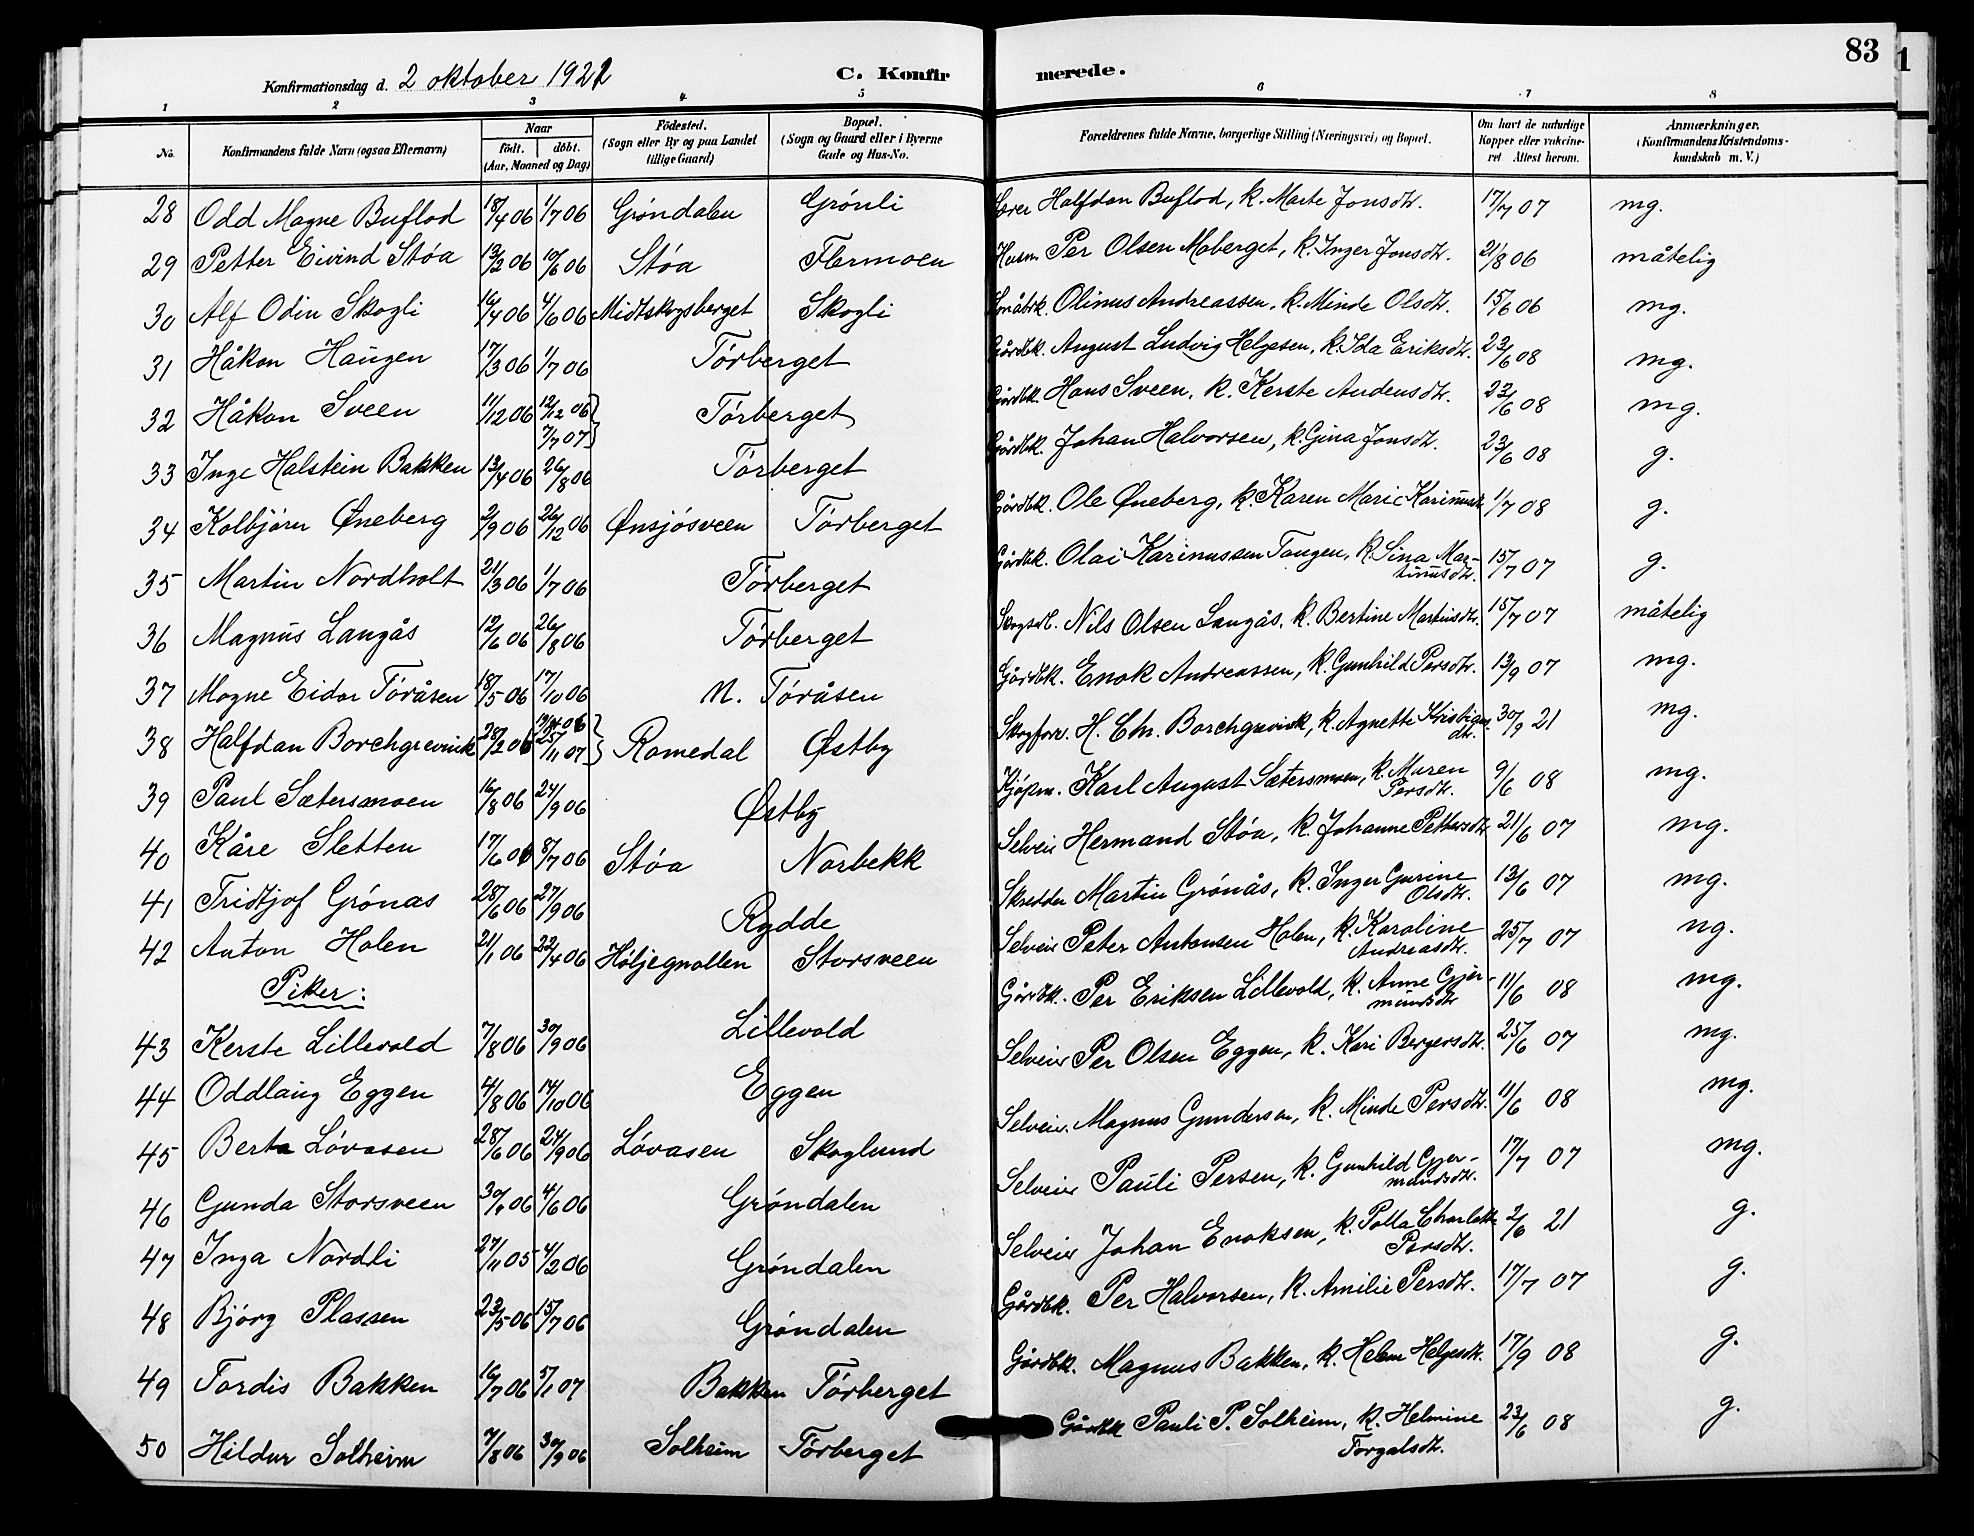 83
1
Konfirmationsdag d. 2 oktober 1921
C. Konfirmerede.
1 2 3 4 5 6 7 8
No. Konfirmandens fulde Navn (ogsaa Efternavn) Naar født. døbt. (Aar, Maaned og Dag) Fødested. (Sogn eller By og paa Landet tillige Gaard) Bopæl. (Sogn og Gaard eller i Byerne Gade og Hus-No. Forældrenes fulde Navne, borgerlige Stilling (Næringsvei) og Bopæl. Om havt de naturlige Kopper eller vakcineret Attest herom. Anmærkninger. (Konfirmandens Kristendomskundskab m. V.)
28 Odd Magne Buflod 18/4 06 1/7 06 Grøndalen Grønli Lærer Halfdan Buflod, k. Marte Jonsdt. 17/7 07 mg.
29 Petter Eivind Støa 13/2 06 10/6 06 Støa Flermoen Husm. Per Olsen Moberget, k. Inger Jonsdt. 21/8 06 måtelig
30 Alf Odin Skogli 16/4 06 4/6 06 Midtskogsberget Skogli Småbrk. Olinus Andreassen, k. Minde Olsdt. 15/6 06 mg.
31 Håkon Haugen 17/3 06 1/7 06 Tørberget Gårdbk. August Ludvig Helgesen, k. Ida Eriksdt. 23/6 08 mg.
32 Håkon Sveen 11/12 06 12/12 06 7/7 07 Tørberget Gårdbk. Hans Sveen, k. Kerste Audensdt. 23/6 08 mg.
33 Inge Halstein Bakken 13/4 06 26/8 06 Tørberget Gårdbk. Johan Halvorsen, k. Gina Jonsdt. 23/6 08 g.
34 Kolbjørn Øneberg 2/9 06 26/12 06 Ønsjøsveen Tørberget Gårdbk. Ole Øneberg, k. Karen Marie Karinusdt. 1/7 08 g.
35 Martin Nordholt 21/3 06 1/7 06 Tørberget Gårdbk. Olai Karinussen Tangen, k. Sina Martinusdt. 15/7 07 g.
36 Magnus Langås 12/6 06 26/8 06 Tørberget Nils Olsen Langås, k. Bertine Martinsdt. 15/7 07 måtelig
37 Magne Eidar Tøråsen 18/5 06 17/10 06 N. Tøråsen Gårdbk. Enok Andreassen, k. Gunhild Persdt. 13/9 07 mg.
38 Halfdan Borchgrevink 28/2 06 25/11 07 Romedal Østby Skogforv. H. Chr. Borchgrevink, k. Agnette 30/9 21 mg.
39 Paul Sætersmoen 16/8 06 24/9 06 Østby Kjøpm. Karl August Sætersmoen, k. Maren Persdt. 9/6 08 mg.
40 Kåre Sletten 17/6 06 8/7 06 Støa Norbekk Selveier Hermand Støa, k. Johanne Pettersdt. 21/6 07 mg.
41 Fridtjof Grønas 28/6 06 27/9 06 Rydde Skredder Martin Grønås, k. Inger Gurine Olsdt. 13/6 07 mg.
42 Anton Holen 21/1 06 22/4 06 Høljegnollen Storsveen Selveier Peter Antonsen Holen, k. Karoline Andreasdt. 25/7 07 ng.
Piker:
43 Kerste Lillevold 7/8 06 30/9 06 Lillevold Gårdbk. Per Eriksen Lillevold, k. Anne Gjermundsdt. 11/6 08 mg.
44 Oddlaug Eggen 4/8 06 14/10 06 Eggen Selveier Per Olsen Eggen, k. Kari Bergersdt. 25/6 07 mg.
45 Berta Løvasen 28/6 06 24/9 06 Løvasen Skoglund Selveier. Magnus Gundersen, k. Minde Persdt. 11/6 08 mg.
46 Gunda Storsveen 4/6 06 Grøndalen Selveier Pauli Persen, k. Gunhild Gjermundsdt. 17/7 07 mg.
47 Inga Nordli 27/11 05 4/2 06 Grøndalen Selveier Johan Enoksen, k. Polla Charlotte Persdt. 2/6 21 g.
48 Bjørg Plassen 23/5 06 15/7 06 Grøndalen Gårdbk. Per Halvorsen, k. Amilie Persdt. 17/7 07 g.
49 Tordis Bakken 16/7 06 5/1 07 Bakken Tørberget Gårdbk. Magnus Bakken, k. Helene Helgesdt. 17/9 08 g.
50 Hildur Solheim 7/8 06 30/9 06 Solheim Tørberget Gårdbk Pauli P. Solheim, k. Helmine Torgalsdt. 23/6 08 g.